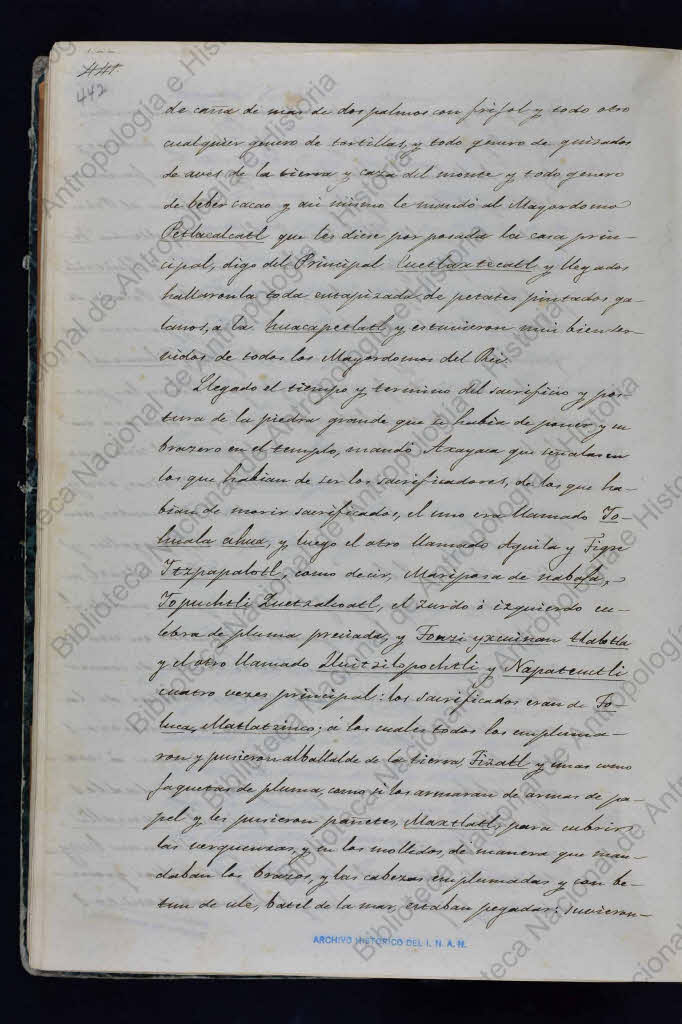 441.
442
de caña de mas de dos palmos con frijol y todo otro
cualquier genero de tortillas, y todo genero de guisados
de aves de la tierra y caza del monte y todo genero
de beber cacao y asi mismo le mandó al Mayordomo
Petlacalcatl que les diese por posada la casa prin-
cipal, digo del Principal Cuetlaxtecatl y llegados
hallaronla toda entapizada de petates pintados ga-
lanos, a la huacapetlatl y estuvieron mui bien ser-
vidos de todos los Mayordomos del Rei.
Llegado el tiempo y termino del sacrificio y pos-
tura de la piedra grande que se habia de poner y su
brazero en el templo, mandó Axayaca que señalasen
los que habian de ser los sacrificadores, de los que ha-
bian de morir sacrificados, el uno era llamado To-
huala cihua, y luego el otro llamado Aguila y Tigre
Itzpapalotl, como decir, Mariposa de nabaja,
Topuchtli Quetzalcoatl, el zurdo ó izquierdo cu-
lebra de pluma preciada, y Tonzi yxcuinan tlalotla
y el otro llamado Huitzilopochtli y Napatecutli
cuatro vezes principal: los sacrificados eran de To-
luca, Matlatzinco; á los cuales todos los empluma-
ron y pusieron alballalde de la tierra Tizatl y unas como
jaquetas de pluma, como si los armaran de armas de pa-
pel y les pusieron pañetes, Maxtlatl, para cubrir
las verguenzas, y en los molledos, de manera que man-
daban los brazos, y las cabezas emplumadas y con be-
tun de ule, batel de la mar, estaban pegadas: suvieron-
ARCHIVO HISTORICO DEL I. N. A. H.
Biblioteca Nacional de Antropología e Historia